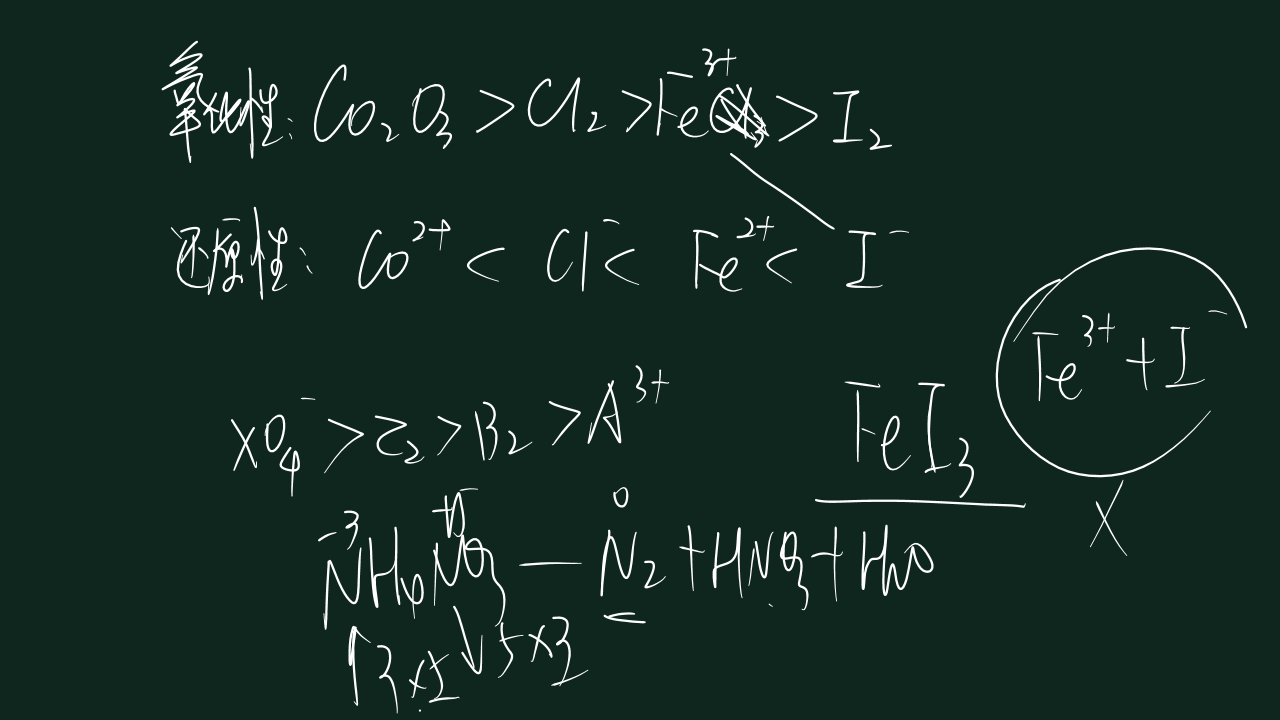 氧化性: Co₂O₃ > Cl₂ > Fe³⁺ > I₂
还原性: Co²⁺ < Cl⁻ < Fe²⁺ < I⁻
Fe³⁺ + I⁻
XO₄⁻ > Z₂ > B₂ > A³⁺
FeI₃
X
-3 +5 0
NH₄NO₃ — N₂ + HNO₃ + H₂O
↑3×5 ↓5×3